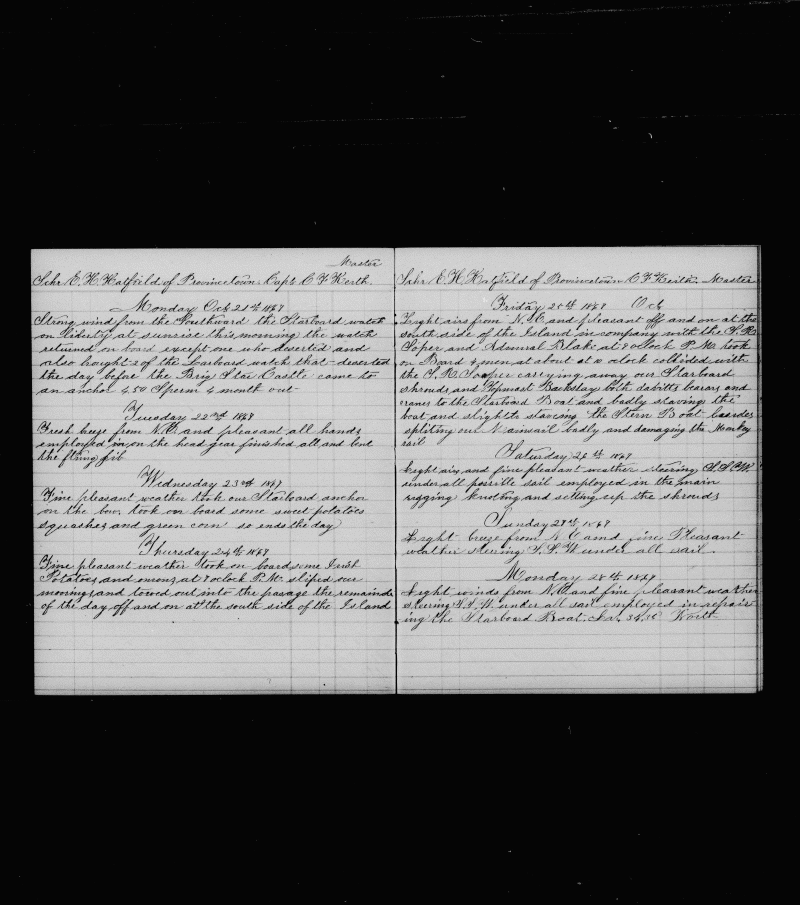 Master
Schr E. H. Hatfield of Provincetown Capt C F Keith.
Monday Oct 21st 1867
Strong wind from the Southward the Starboard watch
on liberty at sunrise this morning the watch
returned on board except one who deserted and
also brought 2 of the Larboard watch that deserted
the day before the Brig Castle came to
an anchor 450 Sperm 4 month out
Tuesday 22nd 1867
Fresh breeze from N.E. and pleasant all hands
employed in on the head gear finished all and bent
the flying jib
Wednesday 23rd 1867
Fine pleasant weather took our Starboard anchor
on the bow, took on board some sweet potatoes
squashes and green corn so ends the day
Thursday 24th 1867
Fine pleasant weather took on board some Irish
Potatoes, and onions, at 7 oclock P.M. sliped our
moorings and towed out into the passage the remainde
of the day off and on at the south side of the Island
Schr E H Hatfield of Provincetown C F Keith. Master
Friday 25th 1867 Oct
Light airs from N.E. and pleasant off and on at the
south side of the Island in company with the S. R.
Soper and Admiral Blake at 9 oclock P.M. took
on Board 4 men at about at 10 oclock collided with
the S. R. Soper carrying away our Starboard
shrouds and Topmast Backstay both davitts bearers and
cranes to the Starboard Boat and badly staving the
boat and slightly staving the Stern Boat besides
spliting our Mainsail badly and damaging the Monkey
sail
Saturday 26th 1867
Light airs and fine pleasant weather steering S.S.W.
under all possible sail employed in the main
rigging knotting and setting up the shrouds
Sunday 27th 1867
Light breeze from N.E. and fine Pleasant
weather steering S.S.W under all sail.
Monday 28th 1867
Light winds from N.E. and fine pleasant weather
steering S.S.W. under all sail employed in repair
ing the Starboard Boat. Lat. 34.36 North